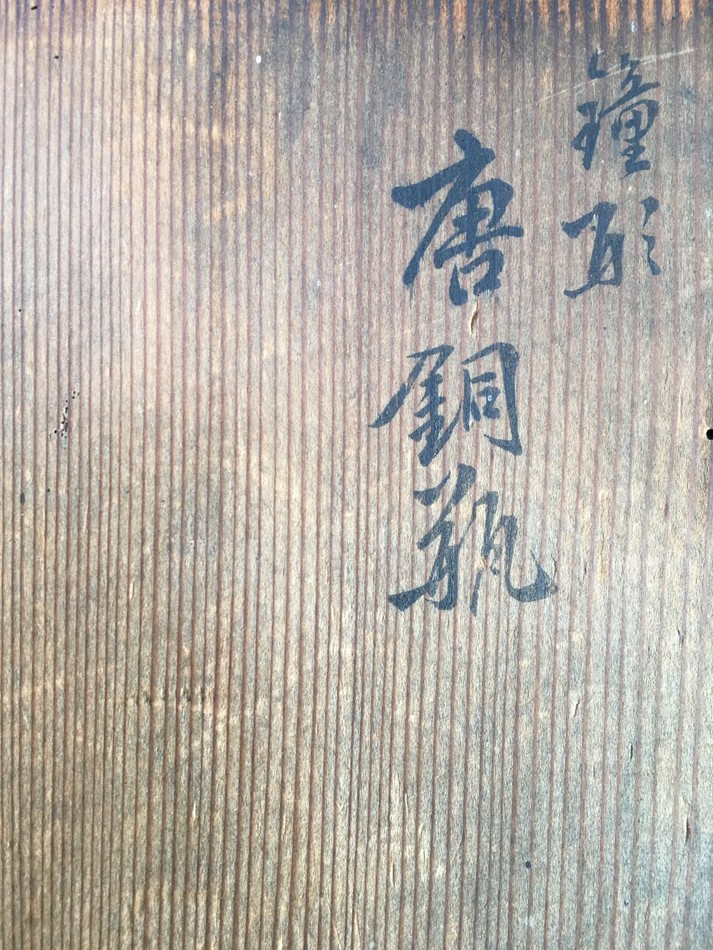 鐘形
唐銅瓶